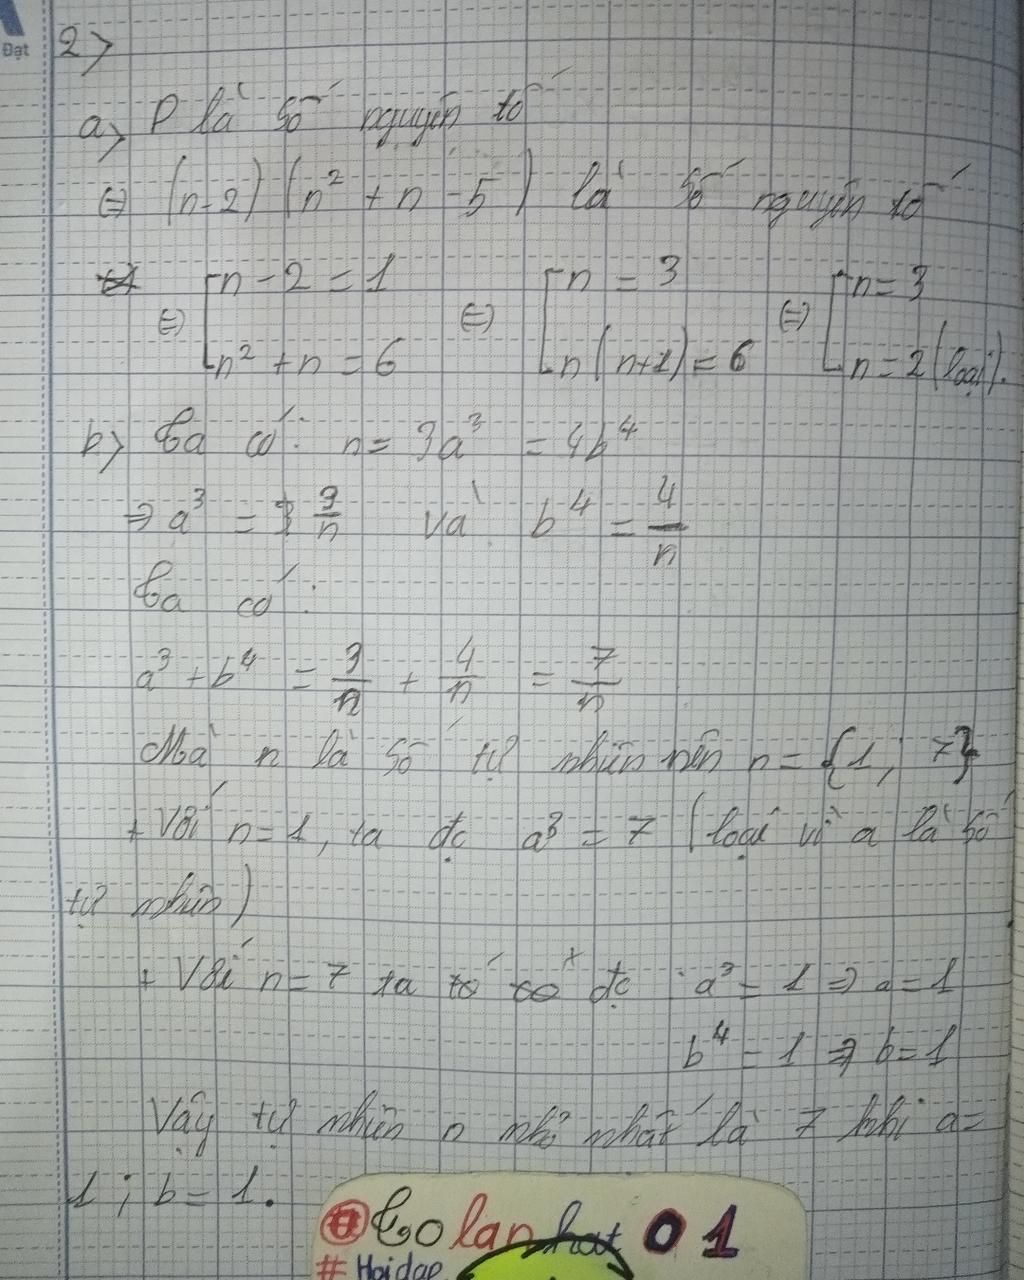 Đạt
2>
a> P là số nguyên tố
⇔ (n-2) (n² + n - 5) là số nguyên tố
⇔ [n - 2 = 1 ⇔ [n = 3 ⇔ [n = 3
[n² + n = 6 [n(n+1) = 6 [n = 2 (loại).
b> Ta có: n = 3a³ = 4b⁴
⇒ a³ = 3/n và b⁴ = 4/n
Ta có:
a³ + b⁴ = 3/n + 4/n = 7/n
Mà n là số tự nhiên nên n = {1; 7}
+ Với n = 1, ta đc a³ = 7 (loại vì a là số
tự nhiên)
+ Với n = 7 ta có đc : a³ = 1 ⇒ a = 1
b⁴ = 1 ⇒ b = 1
Vậy tự nhiên n nhỏ nhất là 7 khi a =
1; b = 1.
lan hat 01
# Hoidap